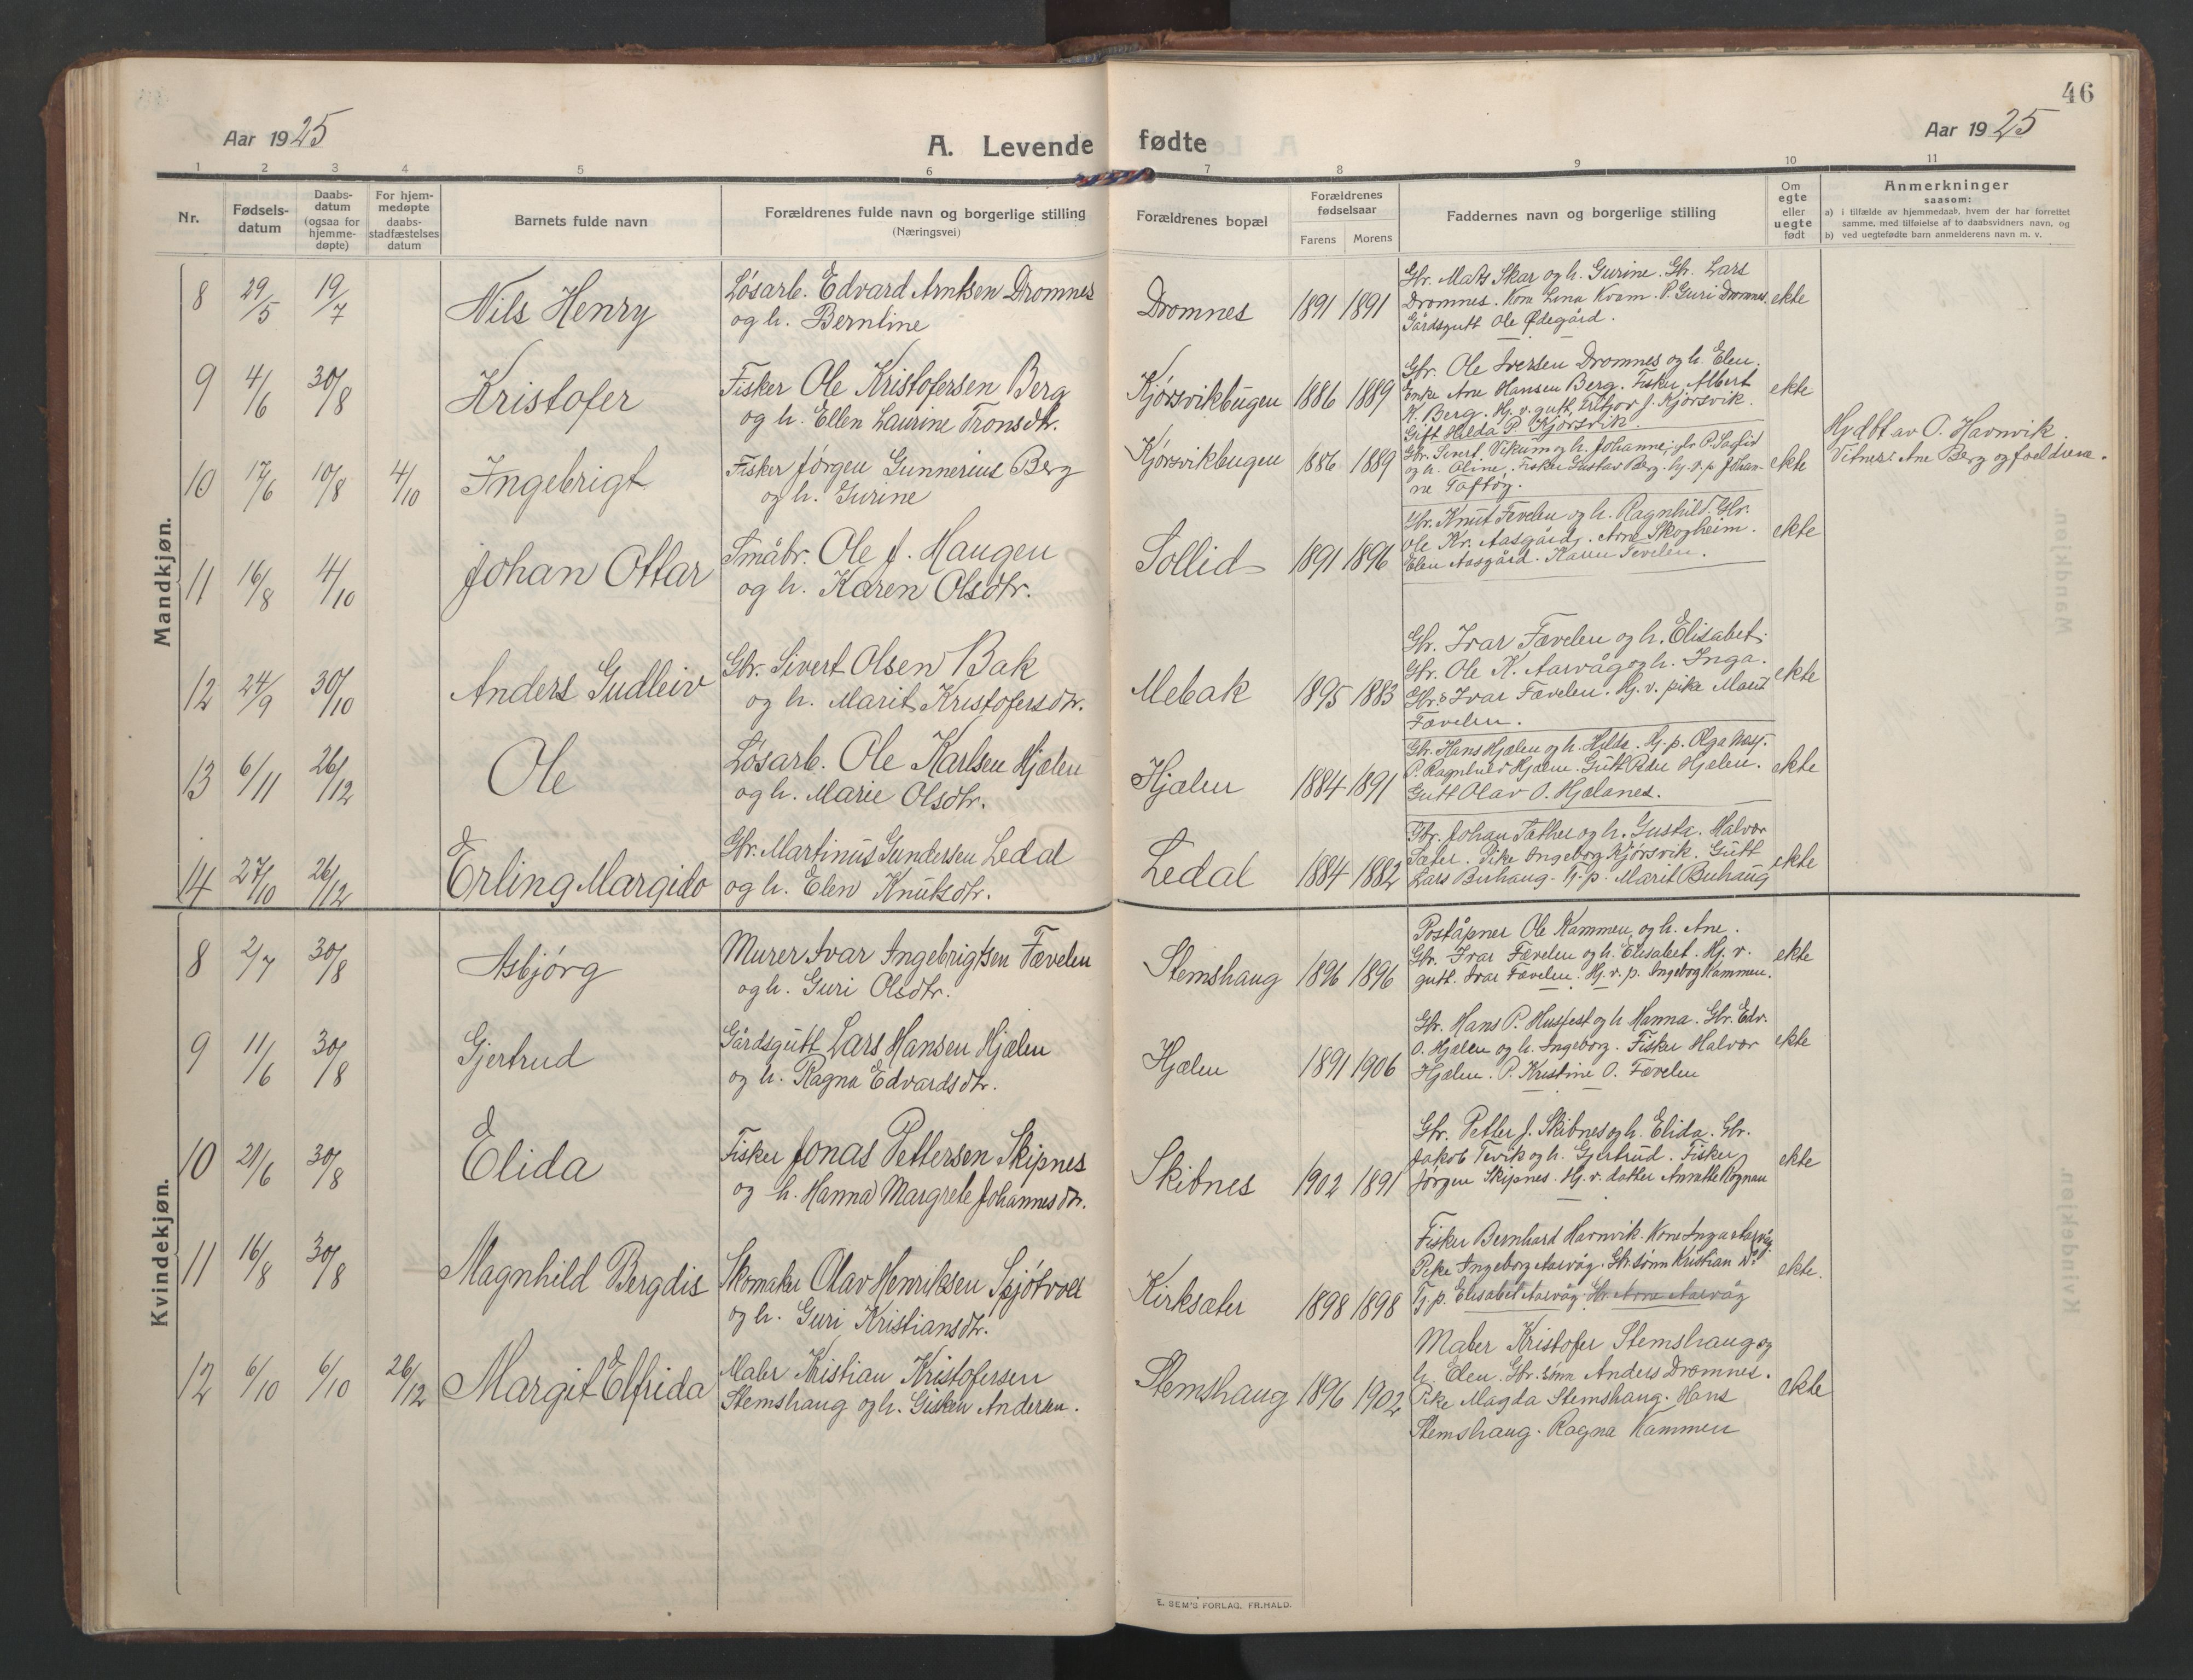 46
Aar 1925
A. Levende fødte
Aar 1925
1 2 3 4 5 6 7 8 9 10 11
Nr.
Fødsels-
datum
Daabs-
datum
(ogsaa for
hjemme-
døpte)
For hjem-
medøpte
daabs-
stadfæstelses
datum
Barnets fulde navn
Forældrenes fulde navn og borgerlige stilling
(Næringsvei)
Forældrenes bopæl
Forældrenes
fødselsaar
Farens Morens
Faddernes navn og borgerlige stilling
Om
egte
eller
uegte
født
Anmerkninger
saasom:
a) i tilfælde av hjemmedaab, hvem der har forrettet
samme, med tilføielse af to daabsvidners navn, og
b) ved uegtefødte barn anmelderens navn m. v.
Mandkjøn.
8 29/5 19/7 Nils Henry
Løsarb. Edvard Arntsen Dromnes
og h. Berntine
Dromnes 1891 1891
Gbr. Mats Skar og h. Gurine. Gbr. Lars
Dromnes. Kone Lina Kvam. P. Guri Dromnes.
Gårdsgutt Ole Ødegård.
ekte
9 4/6 30/8 Kristofer
Fisker Ole Kristofersen Berg
og h. Ellen Laurine Tronsdtr.
Kjørsvikbugen 1886 1889
Gbr. Ole Iversen Dromnes og h. Elen.
Enke Ane Hansen Berg. Fisker Albert
K. Berg. Hj. v. gutt J. Kjørsvik.
Gift Hilda P. Kjørsvik.
ekte
10 17/6 10/8 4/10 Ingebrigt
Fisker Jørgen Gunnerius Berg
og h. Gurine
Kjørsvikbugen 1886 1889
Gbr. Sivert Vikum og h. Johanne; gbr. P.
og h. Oline. Fisker Gustav Berg. hj. v. p. Johan-
ne
ekte
Hj.dbt av O. Havnvik
Vitner: Ane Berg og foreldrene.
11 16/8 4/10 Johan Ottar
Småbr. Ole J. Haugen
og h. Karen Olsdtr.
Sollid 1891 1896
Gbr. Knut Fevelen og h. Ragnhild. Gbr.
Ole Kr. Aasgård. Arne Skogheim.
Elen Aasgård. Karen Fevelen.
ekte
12 24/9 30/10 Anders Gudleiv
Gbr. Sivert Olsen Bak
og h. Marit Kristofersdtr.
Mebak 1895 1883
Gbr. Ivar Fævelen og h. Elisabet.
Gbr. Ole K. Aarvåg og h. Inga.
Gbr.s Ivar Fævelen. Hj. v. pike Marit
Fævelen.
ekte
13 6/11 26/12 Ole
Løsarb. Ole Karlsen Hjælen
og h. Marie Olsdtr.
Hjælen 1884 1891
Gbr. Hans Hjælen og h. Hilda. Hj. p. Olga
P. Ragnhild Hjælen. Gutt Peder Hjælen.
Gutt Olav O. Hjelanes.
ekte
14 27/10 26/12 Erling Margido
Gbr. Martinus Gundersen Ledal
og h. Elen Knutsdtr.
Ledal 1884 1882
Gbr. Johan og h. Gusta. Halvor
Sæter. Pike Ingeborg Kjørsvik. Gutt
Lars Buhaug. Tj. p. Marit Buhaug
ekte
Kvindekjøn.
8 2/7 30/8 Asbjørg
Murer Ivar Ingebrigtsen Fævelen
og h. Guri Olsdtr.
Stemshaug 1896 1896
Poståpner Ole Kammen og h. Ane.
Gbr. Ivar Fævelen og h. Elisabet. Hj. v.
gutt. Ivar Fævelen. Hj. v. p. Ingeborg Kammen.
ekte
9 11/6 30/8 Gjertrud
Gårdsgutt Lars Hansen Hjælen
og h. Ragna Edvardsdtr.
Hjælen 1891 1906
Gbr. Hans P. Husfest og h. Hanna. Gbr. Edv.
O. Hjælen og h. Ingeborg. Fisker Halvor
Hjælen. P. Kristine O. Fævelen
ekte
10 20/6 30/8 Elida
Fisker Jonas Pettersen Skipnes
og h. Hanna Margrete Johannesdtr.
Skibnes 1902 1891
Gbr. Petter J. Skibnes og h. Elida. Gbr.
Jakob Tevik og h. Gjertrud. Fisker
Jørgen Skipnes. Hj. v. datter Rognan
ekte
11 16/8 30/8 Magnhild Bergdis
Skomaker Olav Henriksen Sjøtvoll
og h. Guri Kristiansdtr.
Kirksæter 1898 1898
Fisker Bernhard Havnvik. Kone Inga Aarvåg.
Pike Ingeborg Aarvåg. Gbr. sønn Kristian do
Tj. p. Elisabet Aarvåg. Gbr. Arne Aarvåg
ekte.
12 6/10 6/10 26/12 Margit Elfrida
Maler Kristian Kristofersen
Stemshaug og h. Gisken Andersen.
Stemshaug 1896 1902
Maler Kristofer Stemshaug og
h. Elen. Gbr. sønn Anders Dromnes.
Pike Magda Stemshaug. Hans
Stemshaug. Ragna Kammen
ekte
E. SEM'S FORLAG, FR.HALD.